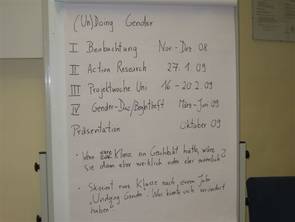 (Un)Doing Gender
I Beobachtung Nov - Dez. 08
II Action Research 27.1.09
III Projektwoche Uni 16.-20.2.09
IV Gender-Day/Begleitheft März-Juni 09
Präsentation Oktober 09
- Wenn eure Klasse ein Geschlecht hätte, wäre
sie dann eher weiblich oder eher männlich?
- Skizziert eure Klasse nach einem Jahr
"Undoing Gender". Was könnte sich verändert
haben?